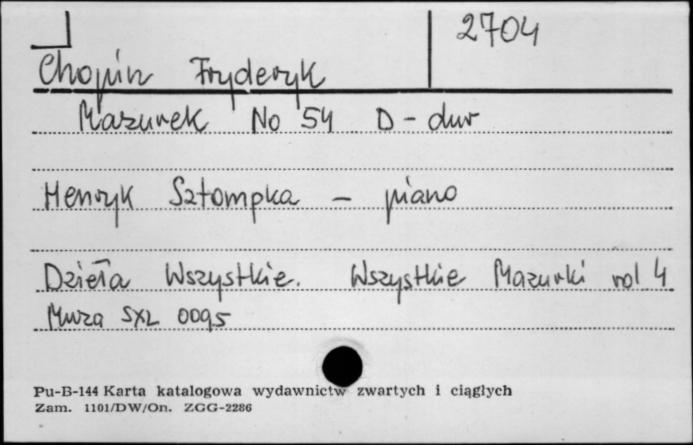 2704
Chopin Fryderyk
Mazurek No 54 D-dur
Henryk Sztompka - piano
Dzieła Wszystkie. Wszystkie Mazurki vol 4
Muza SXL 0095
Pu-B-144 Karta katalogowa wydawnictw zwartych i ciągłych
Zam. 1101/DW/On. ZGG-2286